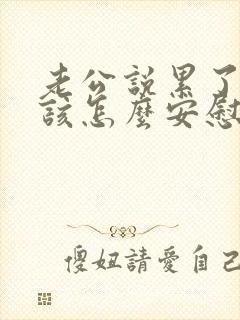 老公說累了
該怎麼安慰
傻妞請愛自己